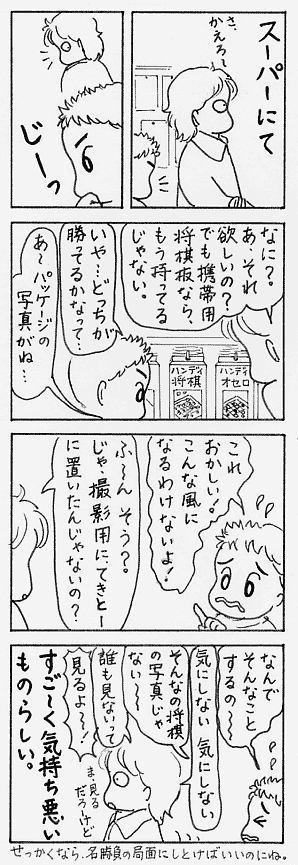 スーパーにて
さ、
かえろ〜
じーっ
なに？。
あ、それ
欲しいの？
でも携帯用
将棋板なら、
もう持ってる
じゃない。
いや…どっちが
勝ってるかなって…
あ〜パッケージの
写真がね…
ハンディ
将棋
ハンディ
オセロ
これ
おかしい！
こんな風に
なるわけないよ！
ふ〜んそう？。
じゃ、撮影用にてきとー
に置いたんじゃないの？
なんで
そんなこと
するの〜
気にしない気にしない
そんなの将棋
の写真じゃ
ない〜
誰も見ないって
見るよ〜！
ま、見る
だろうけど
すご〜く気持ち悪い
ものらしい。
せっかくなら、名勝負の局面にしとけばいいのにね。